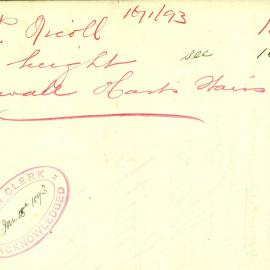 Nicoll 18/1/93
height see
wall Hart's Stairs
CLERK
Jan 18th 1893
ACKNOWLEDGED